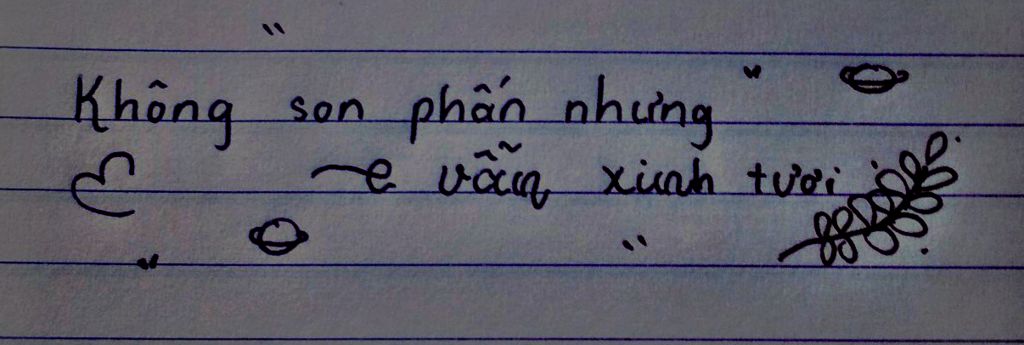 Không son phấn nhưng
e vẫn xinh tươi